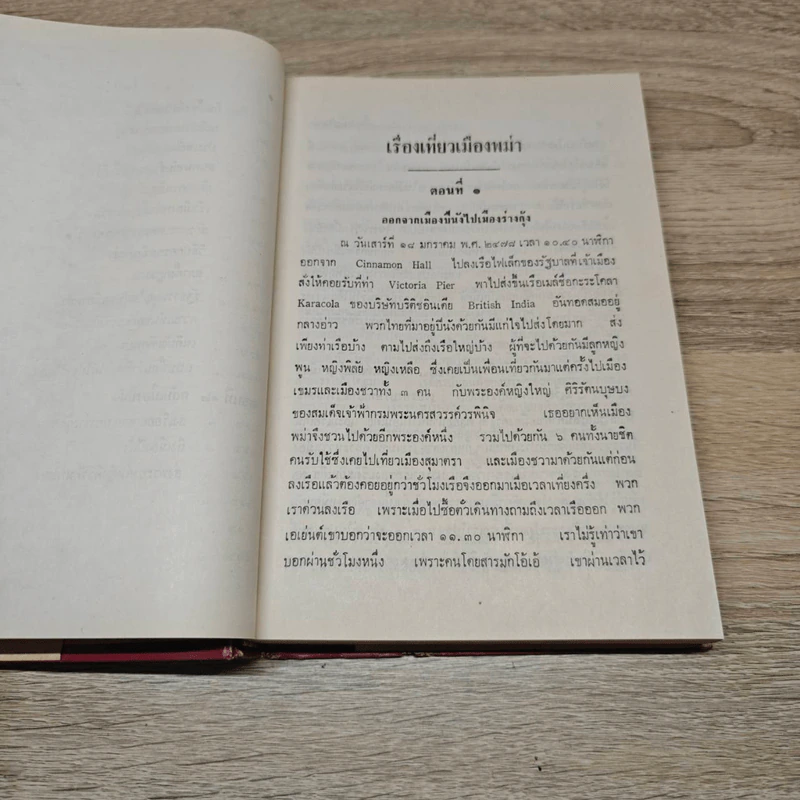 เรื่องเที่ยวเมืองพม่า
ตอนที่ ๑
ออกจากเมืองปีนังไปเมืองร่างกุ้ง
ณ วันเสาร์ที่ ๑๘ มกราคม พ.ศ. ๒๔๗๘ เวลา ๑๐.๔๐ นาฬิกา
ออกจาก Cinnamon Hall ไปลงเรือไฟเล็กของรัฐบาลที่เจ้าเมือง
สั่งให้คอยรับที่ท่า Victoria Pier พาไปส่งขึ้นเรือเมล์ชื่อกะระโคลา
Karacola ของบริษัทบริติชอินเดีย British India อันทอดสมออยู่
กลางอ่าว พวกไทยที่มาอยู่ปีนังด้วยกันมีแก่ใจไปส่งโดยมาก ส่ง
เพียงท่าเรือบ้าง ตามไปส่งถึงเรือใหญ่บ้าง ผู้ที่จะไปด้วยกันมีลูกหญิง
พูน หญิงพิลัย หญิงเหลือ ซึ่งเคยเป็นเพื่อนเที่ยวกันมาแต่ครั้งไปเมือง
เขมรและเมืองชวาทั้ง ๓ คน กับพระองค์หญิงใหญ่ ศิริรัตนบุษบง
ของสมเด็จเจ้าฟ้ากรมพระนครสวรรค์วรพินิจ เธออยากเห็นเมือง
พม่าจึงชวนไปด้วยอีกพระองค์หนึ่ง รวมไปด้วยกัน ๖ คนทั้งนายชิด
คนรับใช้ซึ่งเคยไปเที่ยวเมืองสุมาตรา และเมืองชวามาด้วยกันแต่ก่อน
ลงเรือแล้วต้องคอยอยู่กว่าชั่วโมงเรือจึงออกมาเมื่อเวลาเที่ยงครึ่ง พวก
เราด่วนลงเรือ เพราะเมื่อไปซื้อตั๋วเดินทางถามถึงเวลาเรือออก พวก
เอเย่นต์เขาบอกว่าจะออกเวลา ๑๑.๓๐ นาฬิกา เราไม่รู้เท่าว่าเขา
บอกผ่านชั่วโมงหนึ่ง เพราะคนโดยสารมักโอ้เอ้ เขาผ่านเวลาไว้